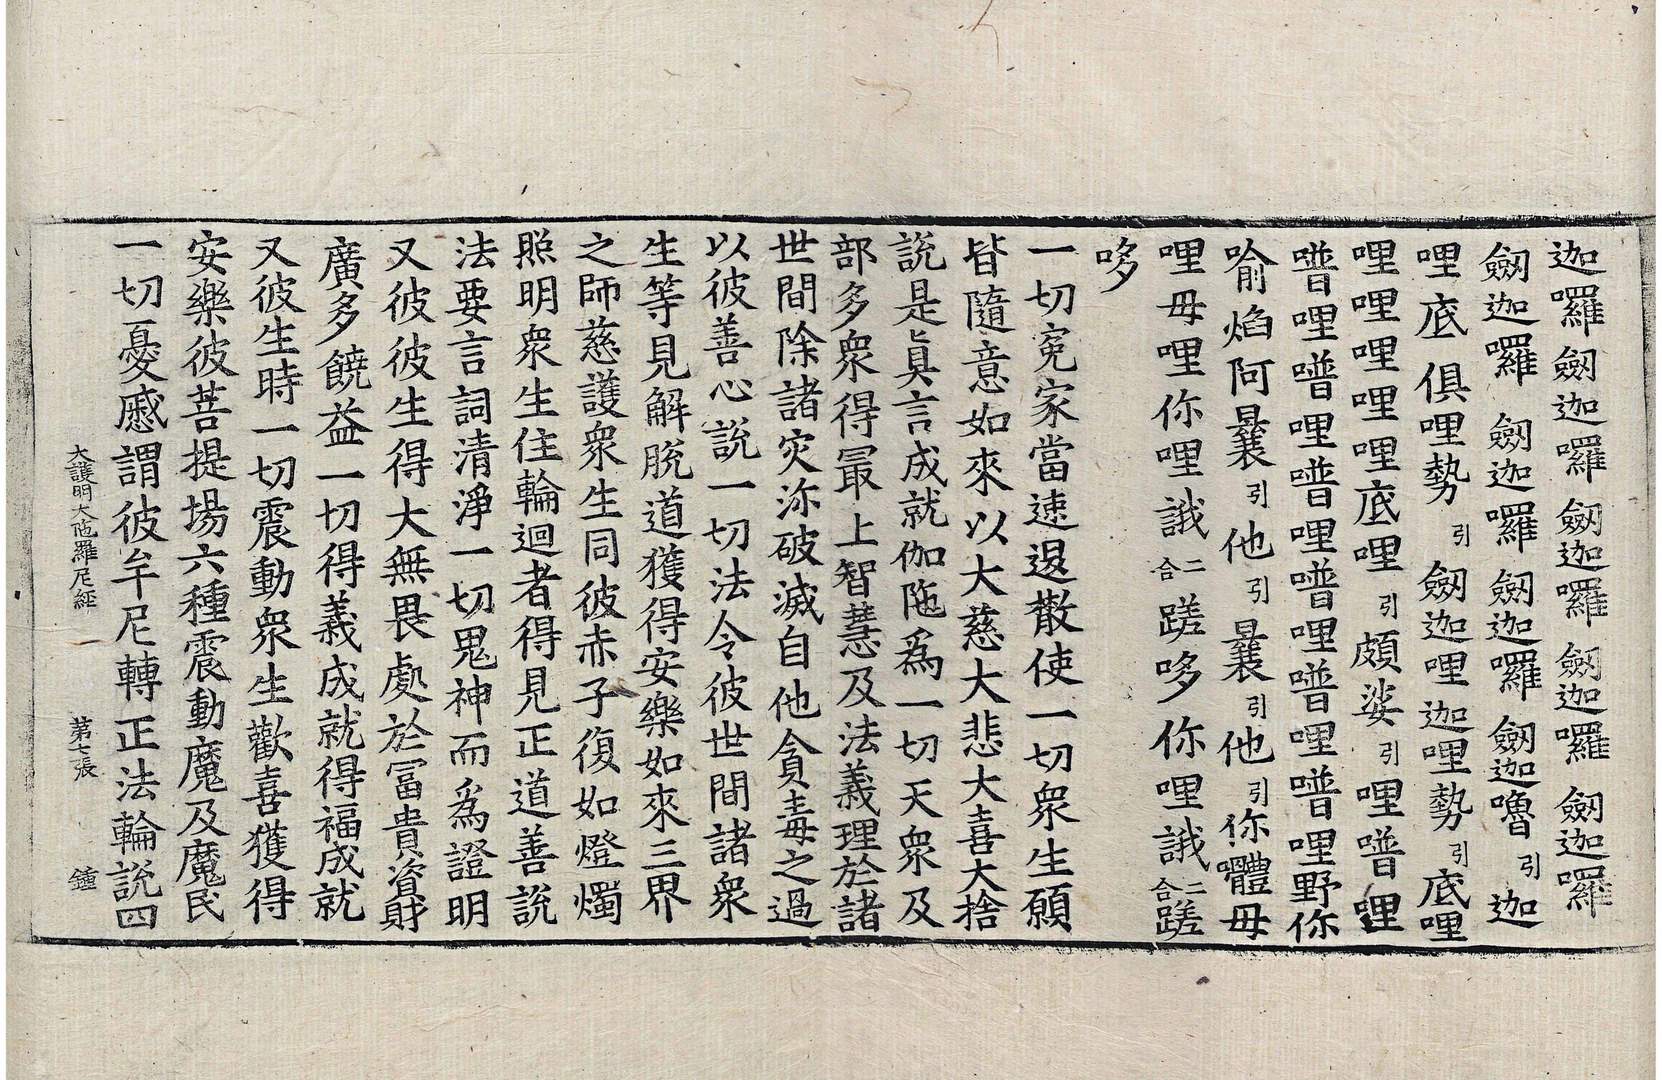 迦囉劒迦囉劒迦囉劒迦囉劒迦囉
劒迦囉劒迦囉劒迦囉劒迦嚕引迦
哩底俱哩勢引劒迦哩迦哩勢引底哩
哩哩哩哩哩底哩引頗娑引哩噆哩
噆哩噆哩噆哩噆哩噆哩噆哩野你
喻焰阿曩引他引曩引他引你軆毋
哩毋哩你哩誐二合蹉哆你哩誐二合蹉
哆
一切寃家當速退散使一切衆生願
皆隨意如來以大慈大悲大喜大捨
說是眞言成就伽陁爲一切天衆及
部多衆得冣上智慧及法義理於諸
世間除諸灾沴破滅自他貪毒之過
以彼善心說一切法令彼世間諸衆
生等見解脫道獲得安樂如來三界
之師慈護衆生同彼赤子復如燈燭
照明衆生住輪迴者得見正道善說
法要言詞清淨一切鬼神而爲證明
又彼彼生得大無畏處於冨貴資財
廣多饒益一切得義成就得福成就
又彼生時一切震動衆生歡喜獲得
安樂彼菩提場六種震動魔及魔民
一切憂慼謂彼牟尼轉正法輪說四
大護明大陁羅尼經 第七張 鍾